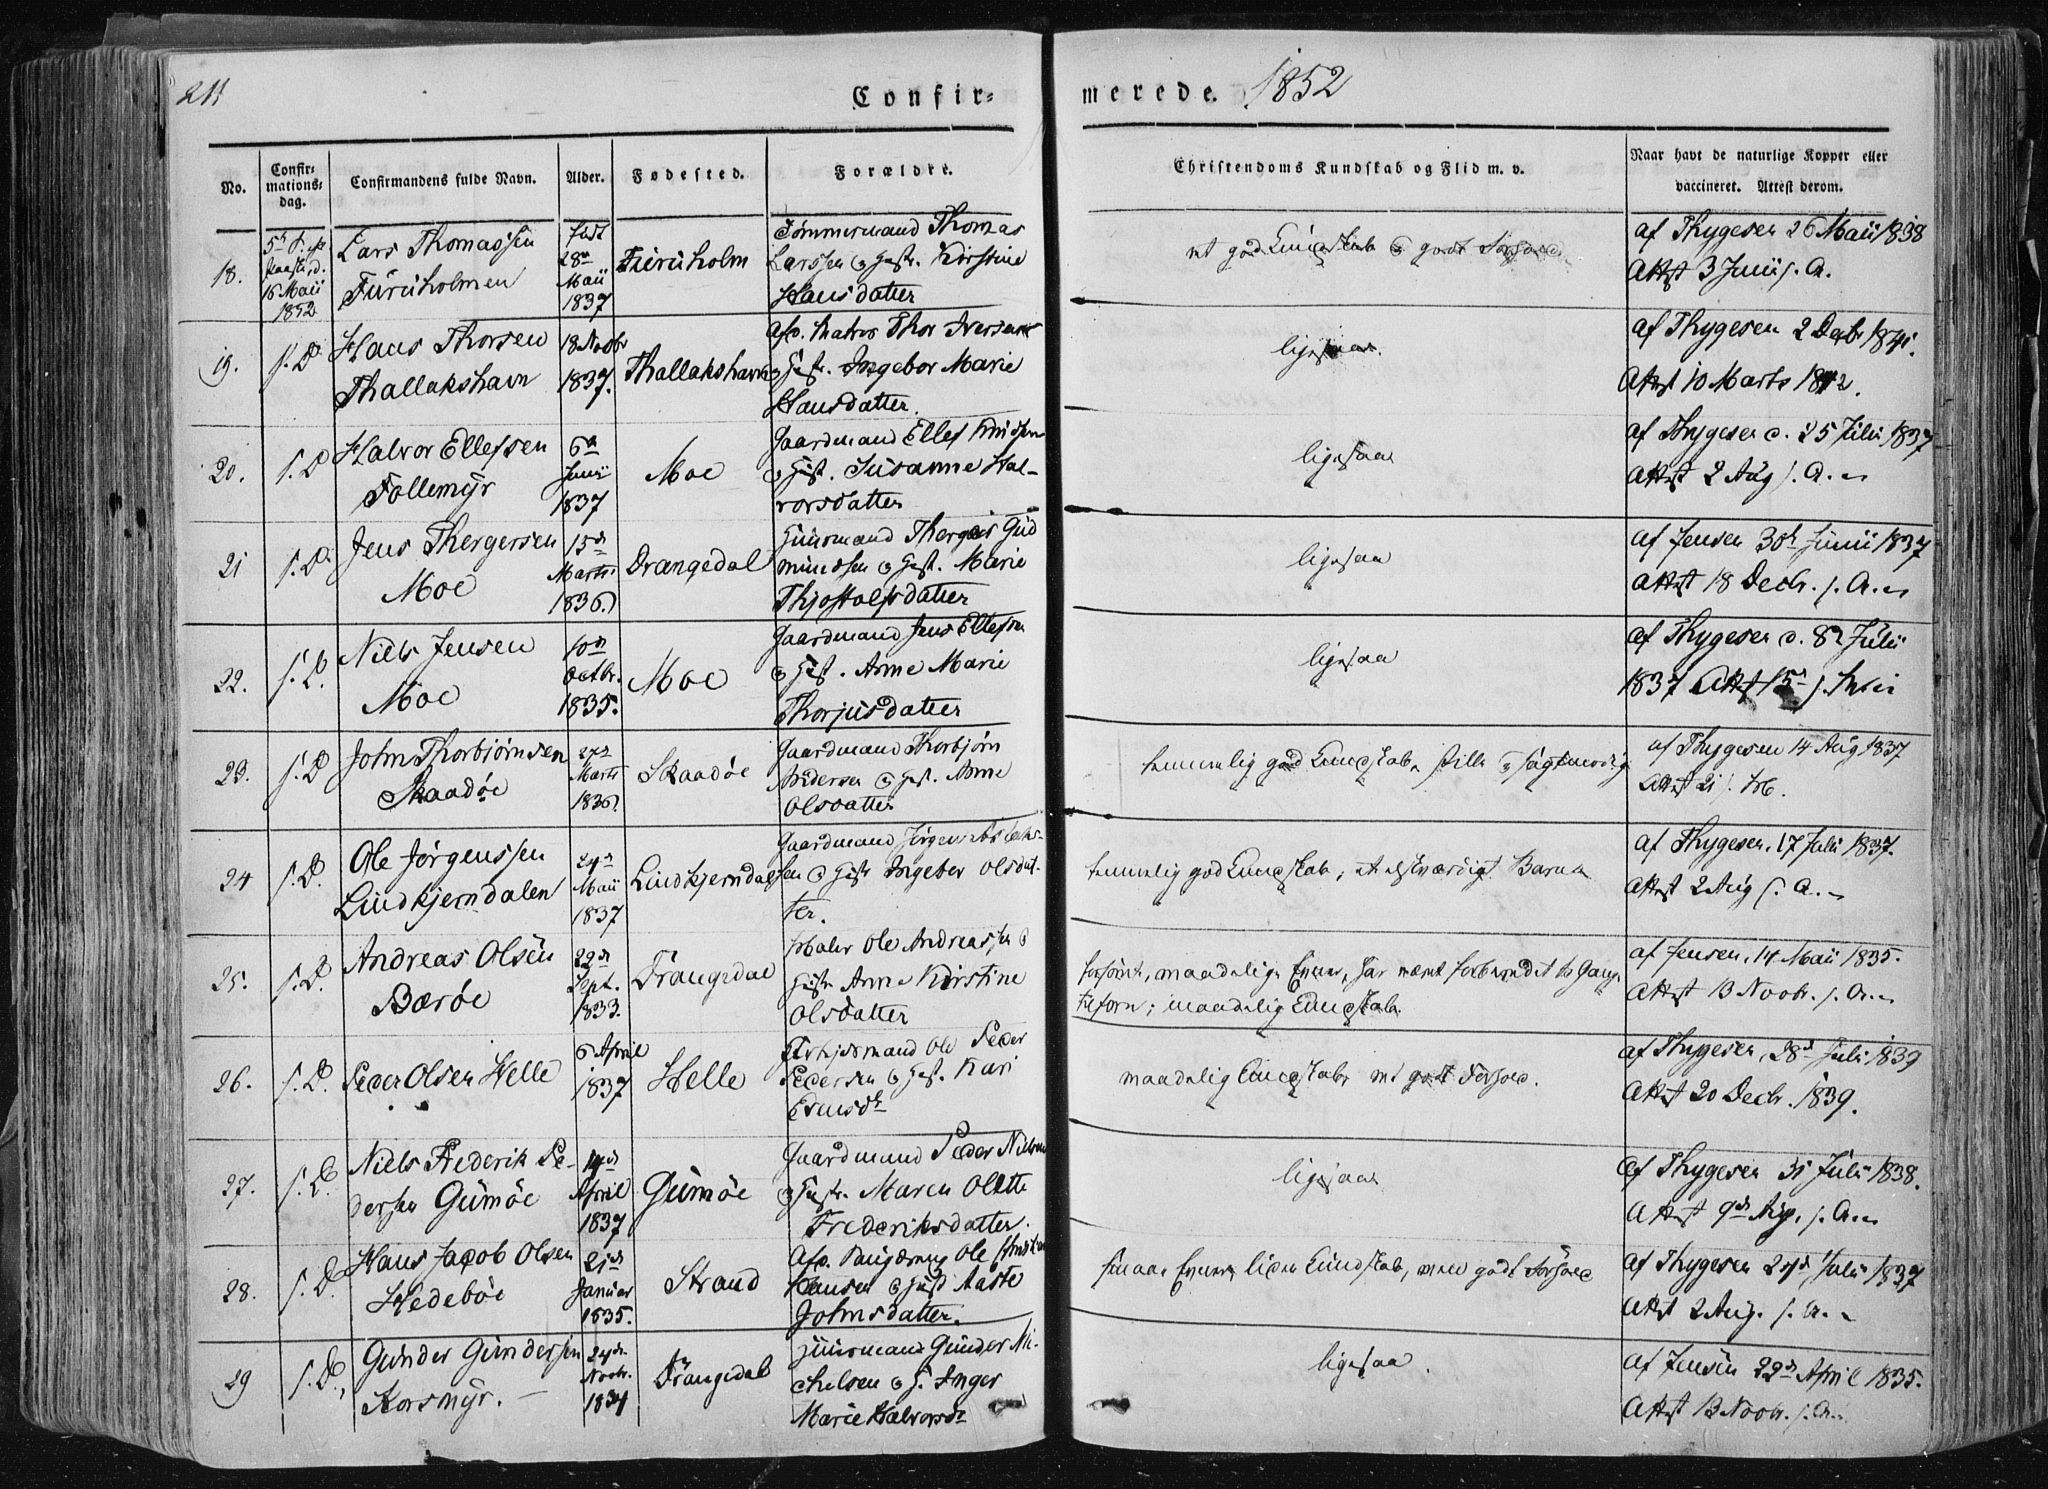 211
Confir-
merede. 1852
No.
Confir-
mations-
dag.
Confirmandens fulde Navn.
Alder.
Fødested.
Forældre.
Christendoms Kundskab og Flid m. v.
Naar havt de naturlige Kopper eller
vaccineret. Attest derom.
18.
16 Maii
1852
Lars Thomassen
Furuholmen
født
28de
Maii
1837
Furuholm
Tømmermand Thomas
Larssen & Hustr. Kirstine
Hansdatter
et god Kundskab & godt Forhold
af Thygesen 26 Maii 1838
Attest 3 Junii s. A.
19.
s. D.
Hans Thorsen
Thallakshavn
18 Novbr
1837.
Thallakshavn
afd. Matros Thor Iversen
& Hustr. Ingebor Marie
Hansdatter.
ligesaa.
af Thygesen 2 Decbr 1841.
Attest 10 Marts 1842.
20.
s. D
Halvor Ellefsen
Tollemyr
6te
Junii
1837
Moe
Gaardmand Ellef Knudsen
& Hustr. Susanne Hal-
vorsdatter
ligesaa
af Thygesen d. 25 Julii 1837
Attest 2 Aug s. A.
21
s. D.
Jens Thergersen
Moe
15de
Marts
1836.
Drangedal
Huusmand Therges Gud
mundsen & Hust. Marie
Thjostolfsdatter
ligesaa
af Jensen 30te Junii 1837
Attest 18 Decbr. s. A.
22.
s. D.
Niels Jensen
Moe
10de
Octbr.
1835.
Moe
Gaardmand Jens Ellefsen
& Hust. Anne Marie
Thorjusdatter
ligesaa
af Thygesen d. 8de Julii
1837 Attest 15de s. Julii
23.
s. D
John Thorbjørnsen
Skaadøe
27de
Marts
1836.
Skaadøe
Gaardmand Thorbjørn
Andersen & Hust. Anne
Olsdatter
temmelig god Kundskab, stille & sagtmodig
af Thygesen 14 Aug 1837
Attest 21 s. M.
24
s. D.
Ole Jørgenssen
Lindkjerndalen
24de
Maii
1837
Lindkjerndal
Gaardmand Jørgen Aslaks-
sen & Hustr Ingebor Olsdat-
ter.
temmelig god Kundskab, et elskværdigt Barn
af Thygesen, 17 Julii 1837.
Attest 2 Aug s. A.
25.
s. D.
Andreas Olsen
Bærøe
22de
Sept.
1833.
Drangedal
Maler Ole Andreassen &
Hustr. Anne Kirstine
Olsdatter
forsømt, maadelige Evner, har været forberedet
tilforn; maadelig Kundskab.
af Jensen, 14 Maii 1835.
Attest 13 Novbr. s. A.
26.
s. D.
Peder Olsen Helle
6 April
1837
Helle
Arbeidsmand Ole Peder
Pedersen & Hust. Kari
maadelig Kundskab, et godt Forhold.
af Thygesen, 28de Julii 1839
Attest 20 Decbr. 1839.
27.
s. D.
Niels Frederik Pe-
dersen Gumøe
14de
April
1837
Gumøe
Gaardmand Peder Nielsen
& Hustr. Maren Olette
Frederiksdatter.
ligesaa
af Thygesen 31 Julii 1838.
Attest 9de Aug. s. A.
28.
s. D.
Hans Jacob Olsen
Hedebøe
21de
Januar
1835.
Strand
Hansen & Hust Aaste
Johnsdatter.
smaa Evner, liden Kundskab, men godt Forhold
af Thygesen 24de Julii 1837
Attest 2 Aug. s. A.
29
s. D.
Gunder Gundersen
Korsmyr.
24de
Novbr.
1834
Drangedal
Huusmand Gunder Mi-
chelsen & H. Inger
Marie Halvorsdr
ligesaa.
af Jensen 22de April 1835.
Attest 13 Novbr. s. A.